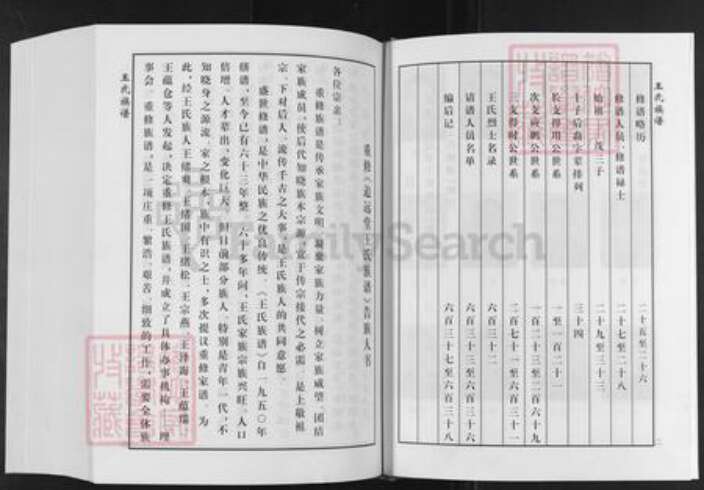 王氏族谱
修谱略历 二十五至二十六
修谱人员、修谱绿士 二十七至二十八
始祖 茂三子 二十九至三十三
十子后裔字辈排列 三十四
长支得用公世系 一至一百二十一
次支应鹏公世系 一百二十三至二百六十九
三支得时公世系 二百七十一至六百三十一
王氏烈士名录 六百三十二
请谱人员名单 六百三十三至六百三十六
编后记 六百三十七至六百三十八
重修《追远堂王氏族谱》告族人书
各位宗亲：
重修族谱是传承家族文明、凝聚家族力量、树立家族威望、团结
家族成员、使后代知晓族本宗源、宜于传宗接代之必需，是上敬祖
宗、下对后人、流传千古之大事，是王氏族人的共同意愿。
盛世修谱，是中华民族之优良传统。《王氏族谱》自一九五〇年
修谱，至今已有六十三年整，六十多年间，王氏家族宗族兴旺、人口
倍增、人才辈出、变化巨大，针目前部分族人，特别是青年一代，不
知晓身之源流、家之根本，族中有识之士，多次提议重修家谱。为
此，经王氏族人王绪 、王绪国、王绪松、王宗燕、王泽海、王蕴瑞、
王蕴仓等人发起，决定重修王氏族谱，并成立了具体办事机构——理
事会。重修族谱，是一项庄重、繁浩、艰苦、细致的工作，需要全体族
王氏族谱
FamilySearch